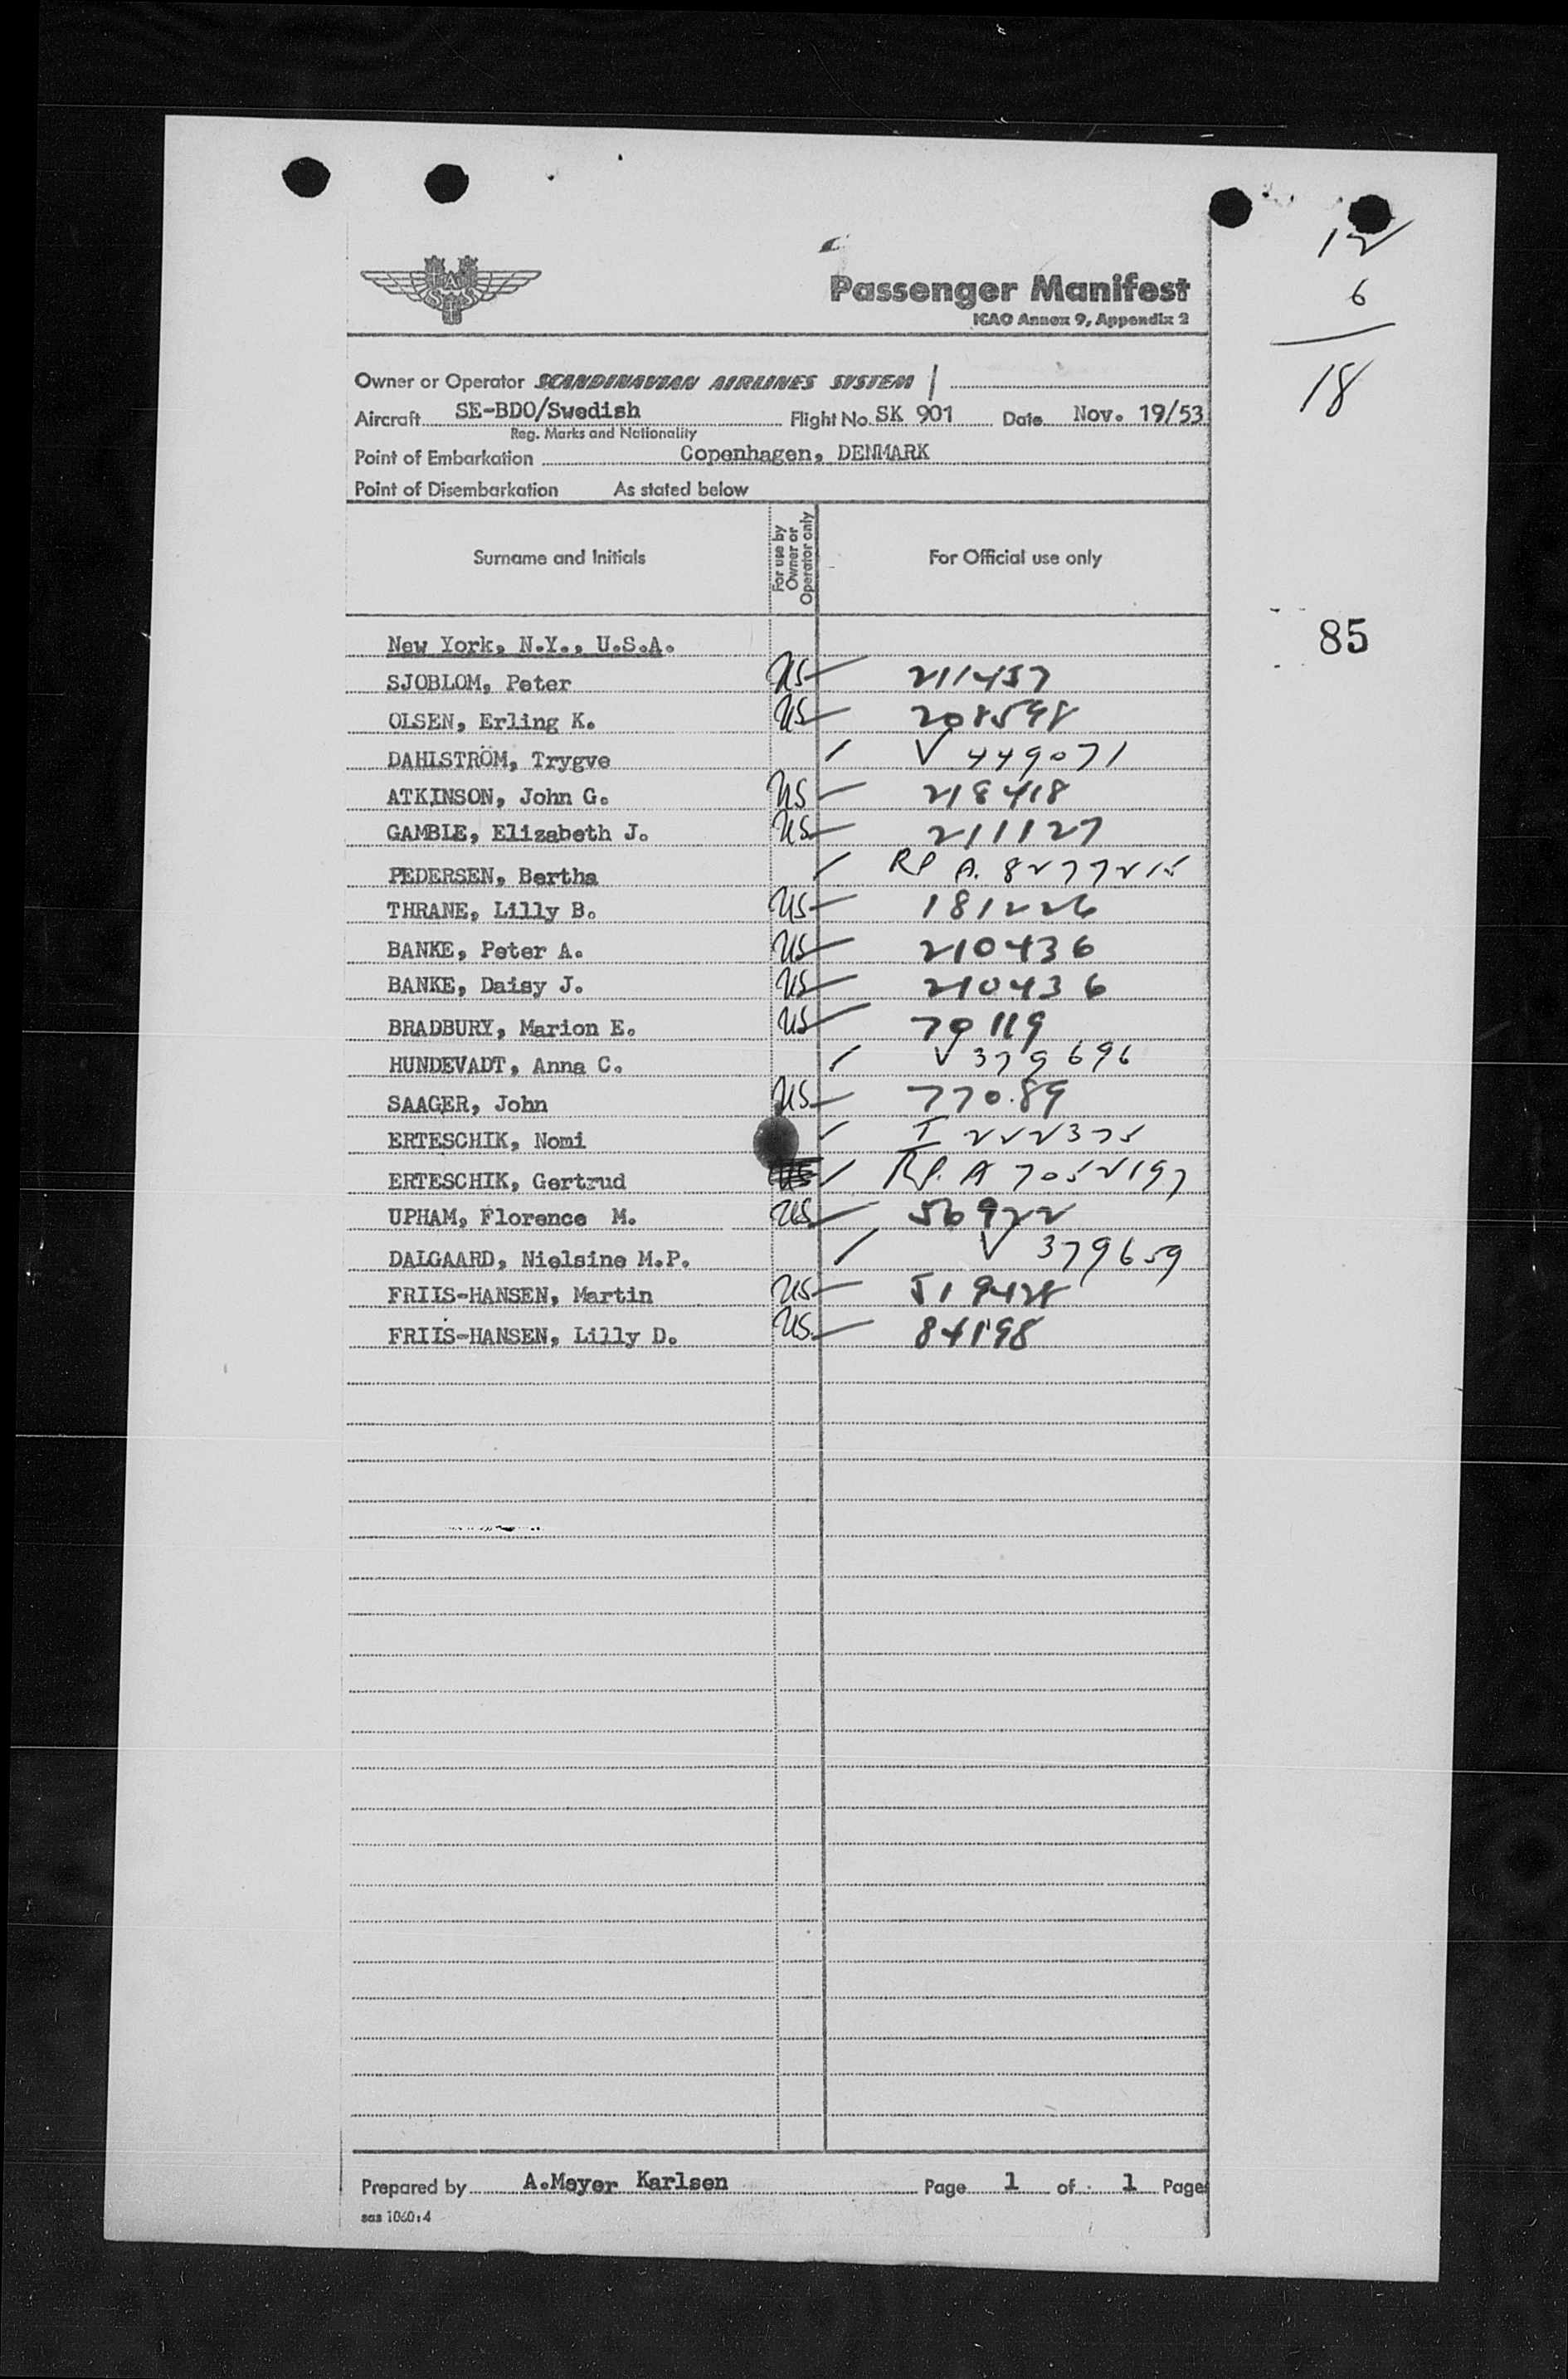 12
6
18
SAS
Passenger Manifest
ICAO Annex 9, Appendix 2
Owner or Operator SCANDINAVIAN AIRLINES SYSTEM
Aircraft SE-BDO/Swedish Flight No. SK 901 Date Nov. 19/53
Reg. Marks and Nationality
Point of Embarkation Copenhagen, DENMARK
Point of Disembarkation As stated below
Surname and Initials For use by Owner or Operator only For Official use only
85
New York, N.Y., U.S.A.
SJOBLOM, Peter US 211457
OLSEN, Erling K. US 208598
DAHLSTRÖM, Trygve V 449071
ATKINSON, John G. US 218418
GAMBLE, Elizabeth J. US 211127
PEDERSEN, Bertha RP A. 8277215
THRANE, Lilly B. US 181226
BANKE, Peter A. US 210436
BANKE, Daisy J. US 210436
BRADBURY, Marion E. US 70119
HUNDEVADT, Anna C. V 379696
SAAGER, John US 77089
ERTESCHIK, Nomi I 252375
ERTESCHIK, Gertrud US RP. A 7052197
UPHAM, Florence M. US 56922
DALGAARD, Nielsine M.P. V 379659
FRIIS-HANSEN, Martin US 519428
FRIIS-HANSEN, Lilly D. US 84198
Prepared by A.Meyer Karlsen Page 1 of 1 Pages
sas 1060:4